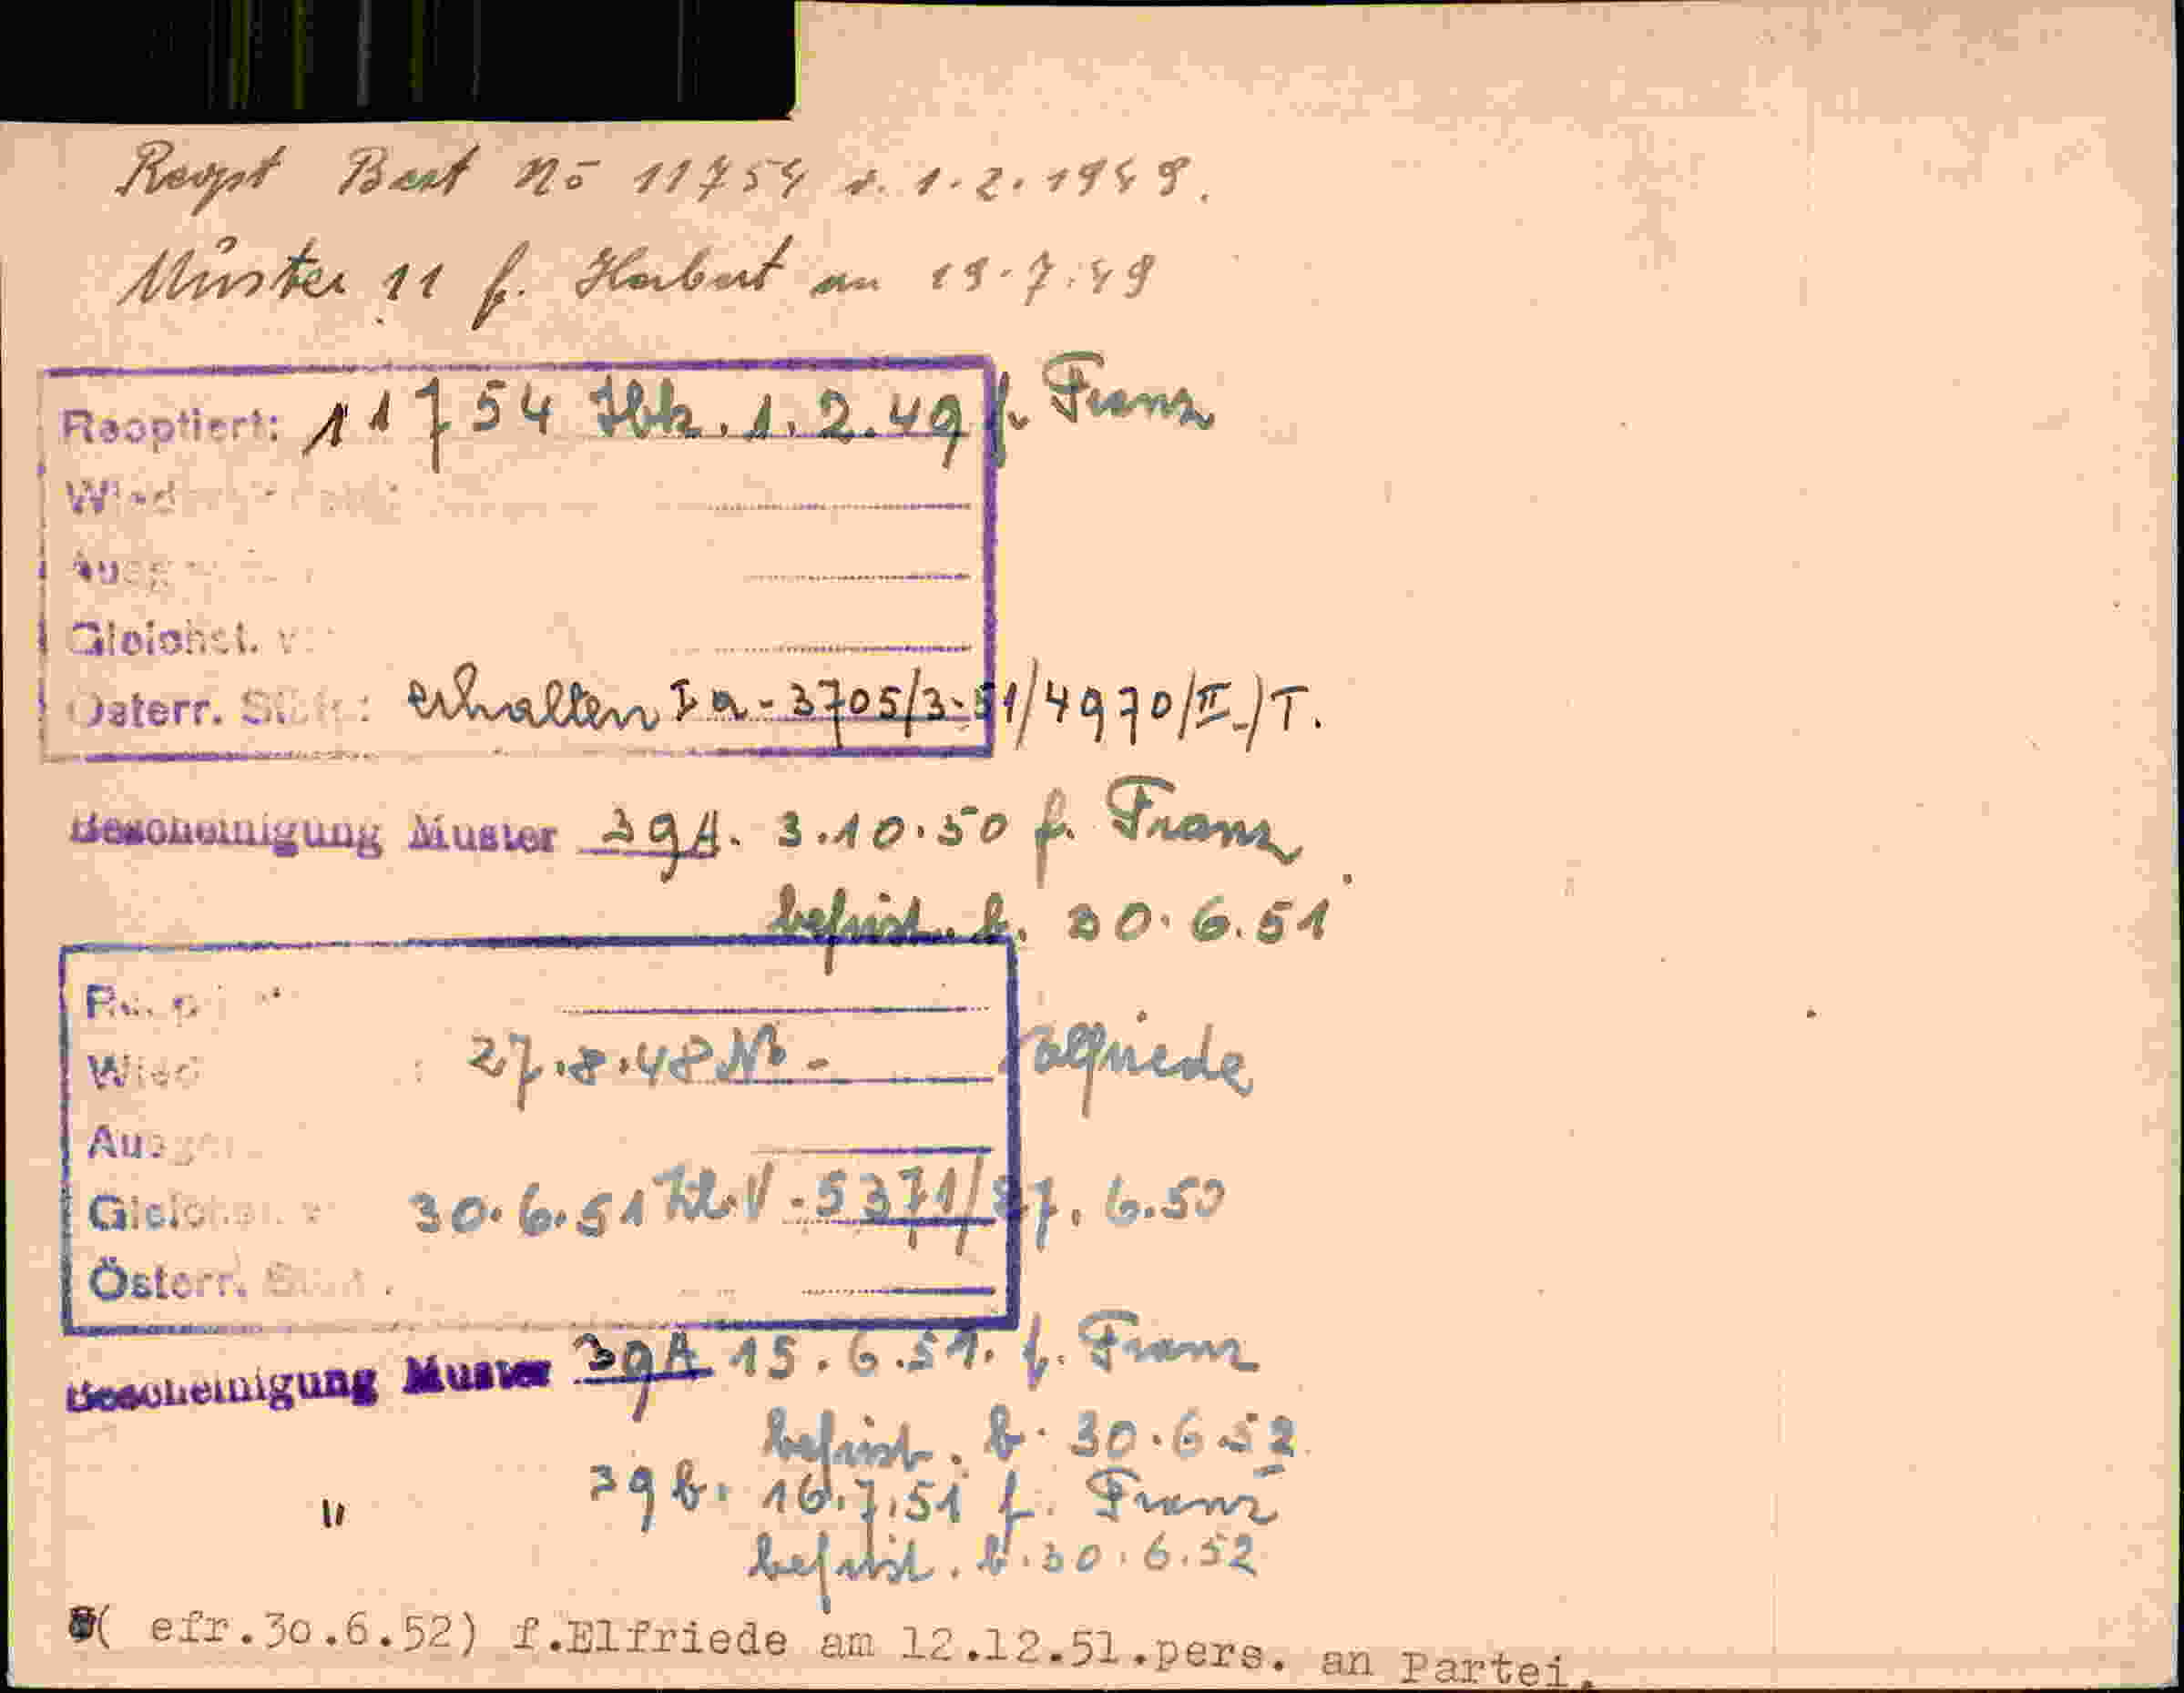 Reopt Best No 11754 v. 1.2.1949.
Muster 11 f. Herbert am 19.7.49
Reoptiert: 11754 Ibk. 1.2.49 f. Franz
Gleichst. v.
Österr. erhalten I a-3705/3-51/4970/II-/T.
Bescheinigung Muster 39A. 3.10.50 f. Franz
befrist. b. 30.6.51
27.8.48 f. Elfriede
30.6.51 Zl. V-5371/27.6.50
Österr.
Bescheinigung Muster 39A 15.6.51. f. Franz
befrist. b. 30.6.52
" 39b. 16.7.51 f. Franz
befrist. b. 30.6.52
( efr.30.6.52) f.Elfriede am 12.12.51.pers. an Partei.